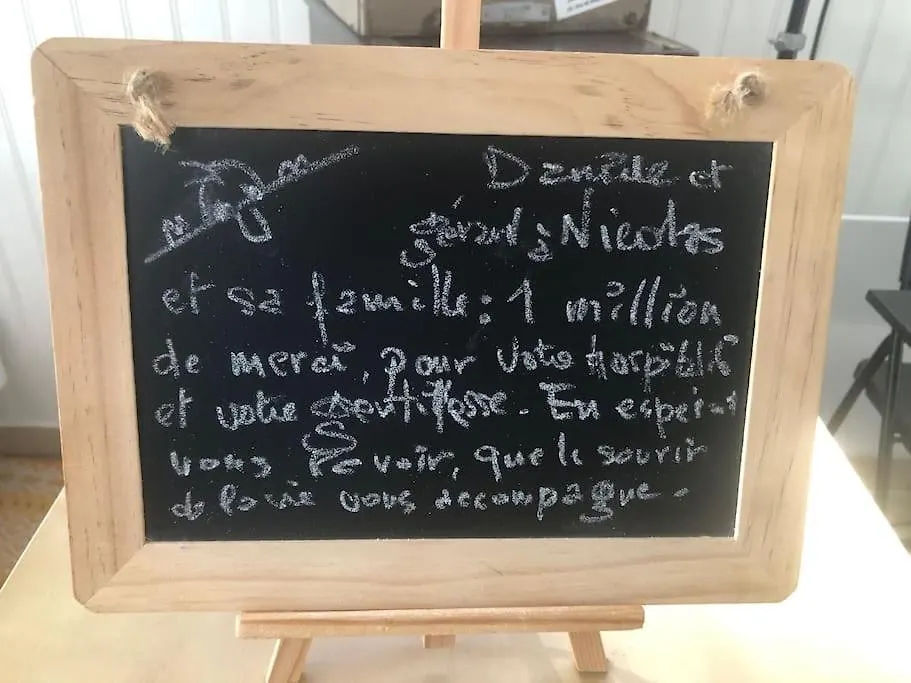 Danièle et
gérard, Nicolas
et sa famille : 1 million
de merci, pour votre
et votre gentillesse. En espér-t
vous revoir, que le sourir
de la vie vous accompagne.